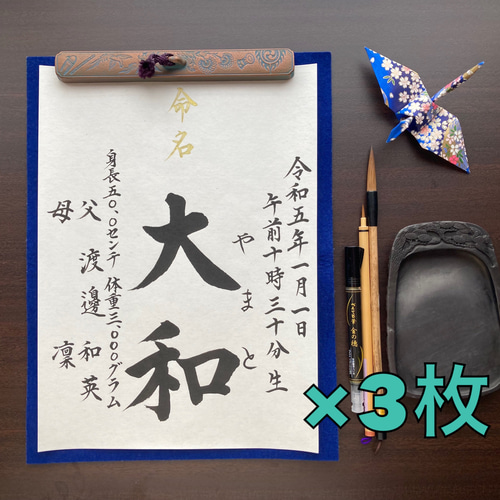 命名
令和五年一月一日
午前十時三十分生
やまと
大和
身長五〇、〇センチ 体重三、〇〇〇グラム
父 渡邉 和英
母 凛
×3枚